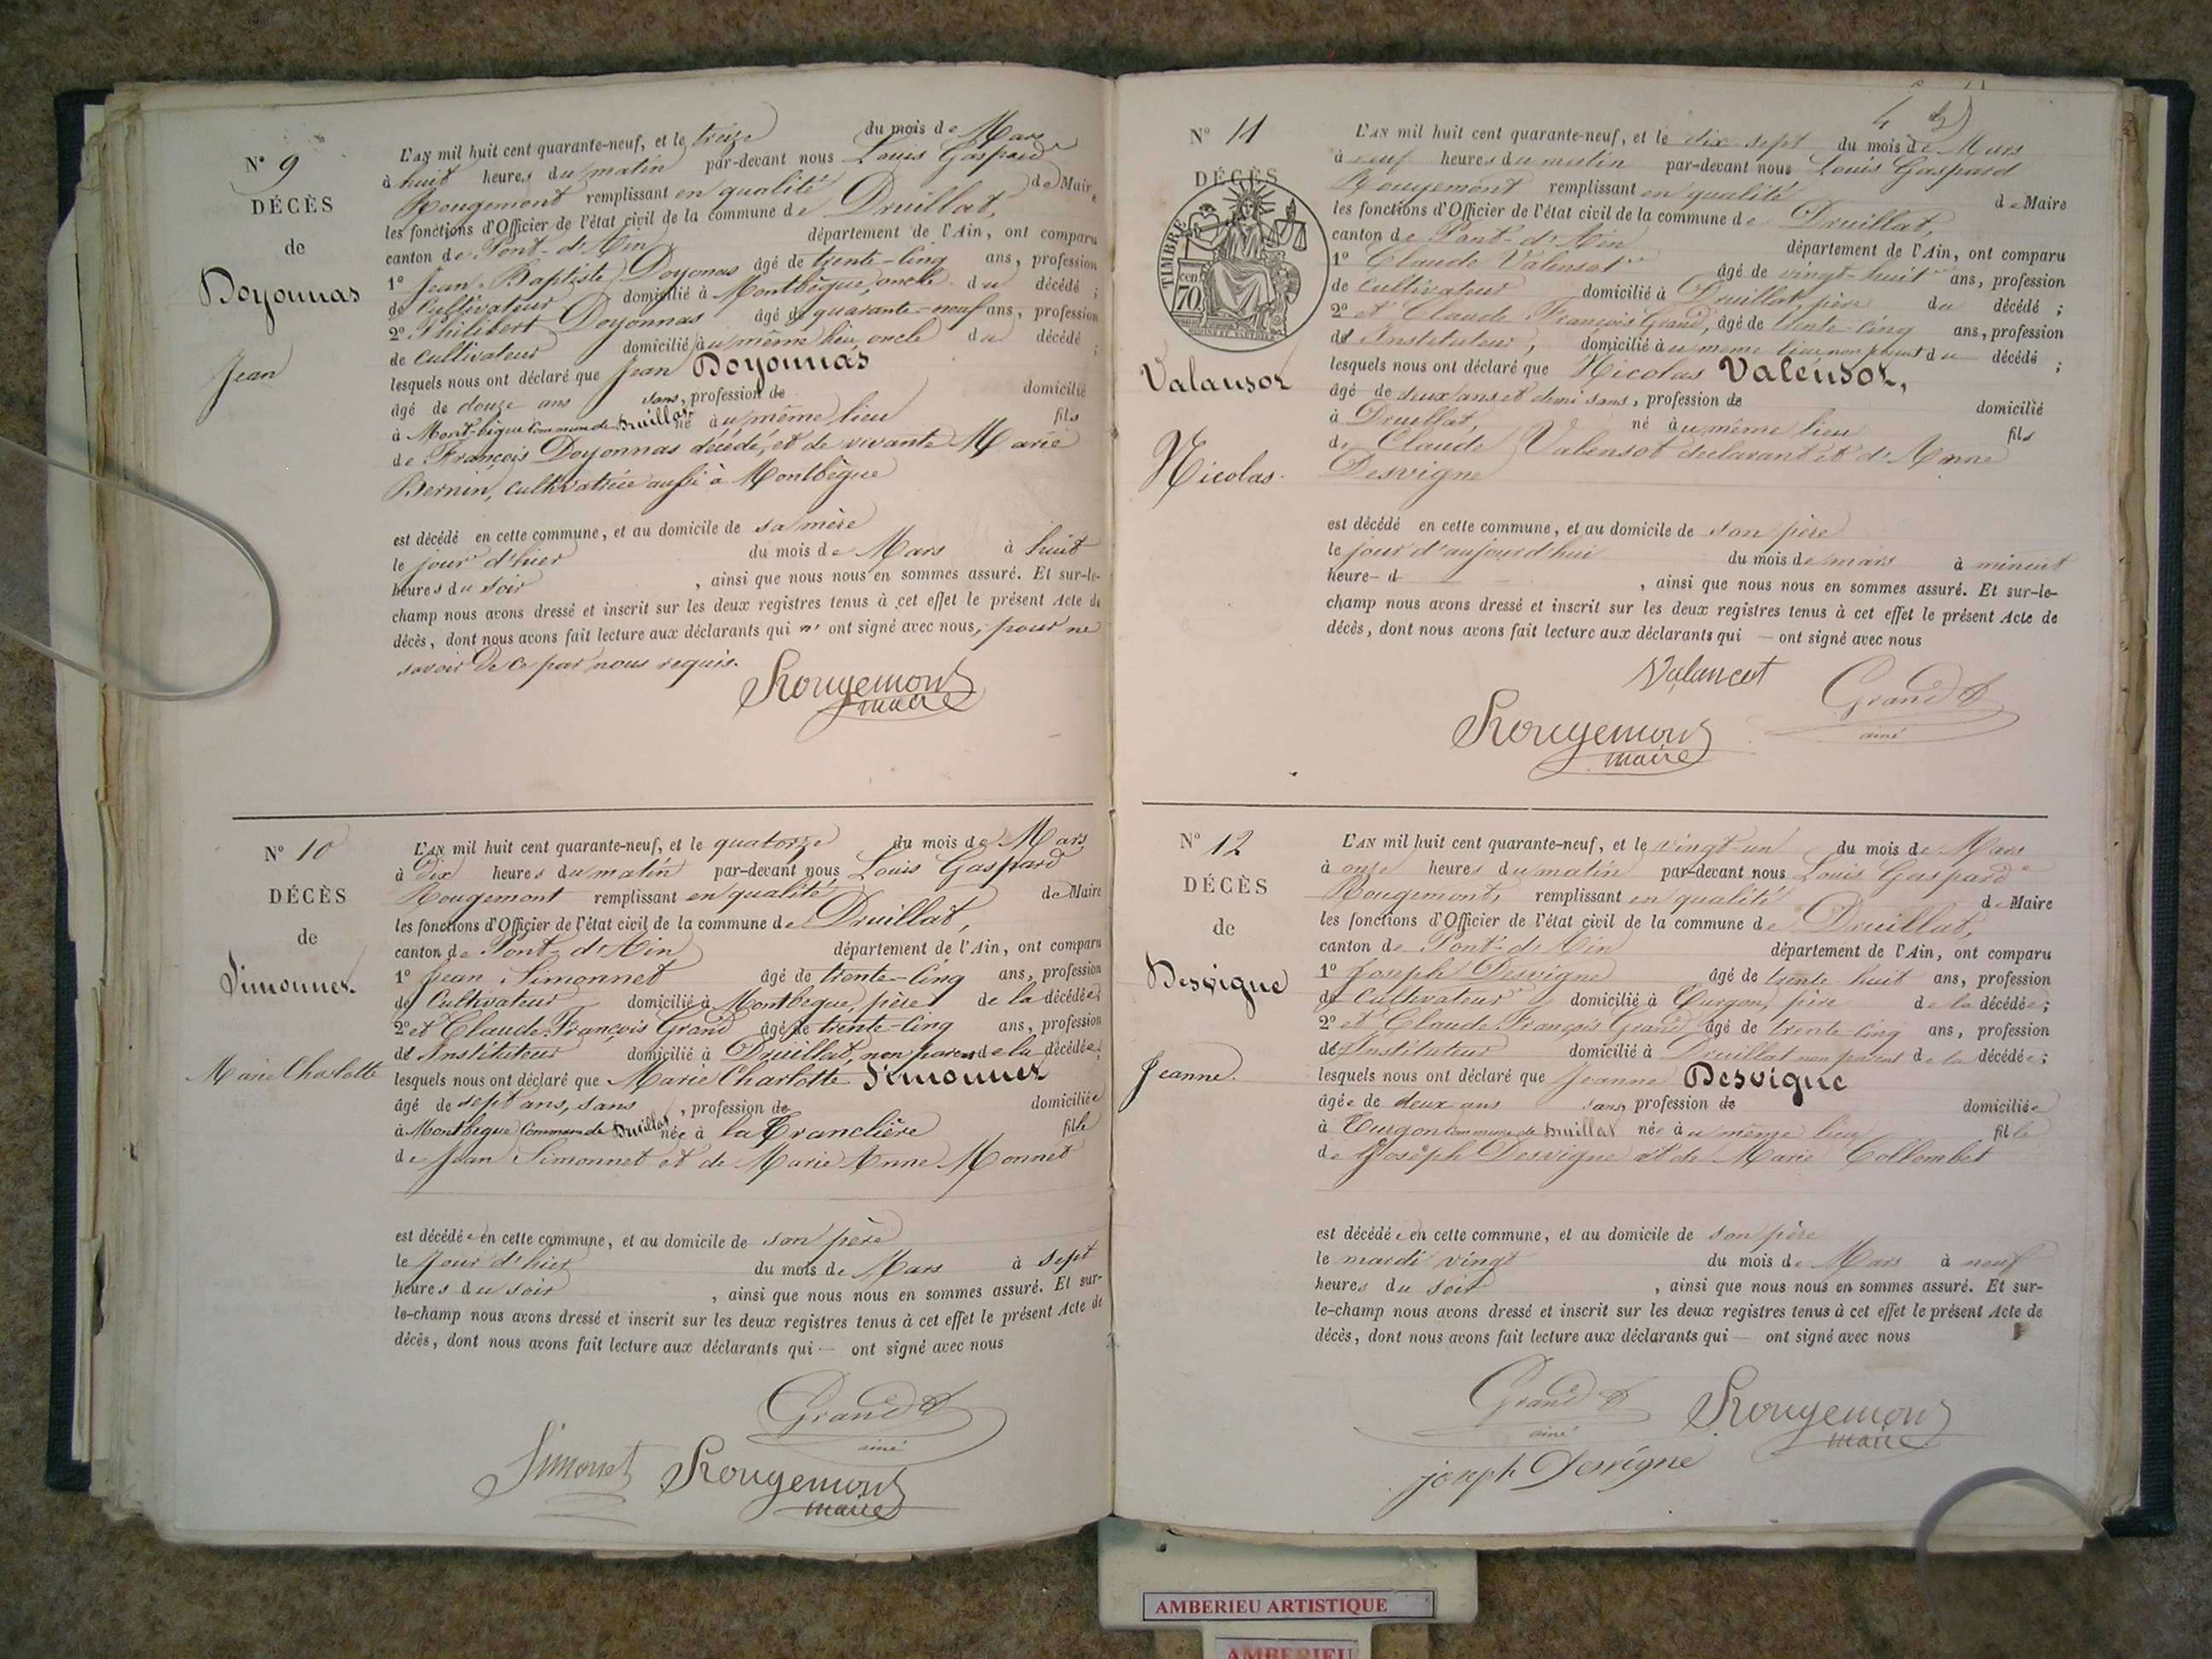 N° 9
DÉCÈS
de
Doyonnas
Jean
L'AN mil huit cent quarante-neuf, et le treize du mois de Mars
à huit heures du matin par-devant nous Louis Gaspard
Rougemont remplissant en qualité de Maire
les fonctions d'Officier de l'état civil de la commune de Druillat,
canton de Pont-d'Ain département de l'Ain, ont comparu
1° Jean-Baptiste Doyonnas âgé de trente-cinq ans, profession
de Cultivateur domicilié à Montbègue, oncle du décédé ;
2° Philibert Doyonnas âgé de quarante-neuf ans, profession
de Cultivateur domicilié au même lieu, oncle du décédé ;
lesquels nous ont déclaré que Jean Doyonnas
âgé de douze ans sans, profession de domicilié
à Mont-bègue Commune de Druillat né au même lieu fils
de François Doyonnas décédé, et de vivante Marie
Bernin, cultivatrice aussi à Montbègue
est décédé en cette commune, et au domicile de sa mère
le jour d'hier du mois de Mars à huit
heures du soir , ainsi que nous nous en sommes assuré. Et sur-le-
champ nous avons dressé et inscrit sur les deux registres tenus à cet effet le présent Acte de
décès, dont nous avons fait lecture aux déclarants qui n' ont signé avec nous, pour ne
savoir de ce par nous requis.
Rougemont
maire
N° 10
DÉCÈS
de
Simonnet.
Marie Charlotte
L'AN mil huit cent quarante-neuf, et le quatorze du mois de Mars
à Dix heures du matin par-devant nous Louis Gaspard
Rougemont remplissant en qualité de Maire
les fonctions d'Officier de l'état civil de la commune de Druillat,
canton de Pont-d'Ain département de l'Ain, ont comparu
1° Jean Simonnet âgé de trente-cinq ans, profession
de Cultivateur domicilié à Montbegue, père de la décédée;
2° et Claude-François Grand âgé de trente-cinq ans, profession
d'Instituteur domicilié à Druillat, non parent de la décédée;
lesquels nous ont déclaré que Marie Charlotte Simonnet
âgé de sept ans, sans , profession de domiciliée
à Montbegue Commune de Druillat née à la Tranclière fille
de Jean Simonnet et de Marie Anne Monnet
est décédée en cette commune, et au domicile de son père
le jour d'hier du mois de Mars à sept
heures du soir , ainsi que nous nous en sommes assuré. Et sur-
le-champ nous avons dressé et inscrit sur les deux registres tenus à cet effet le présent Acte de
décès, dont nous avons fait lecture aux déclarants qui — ont signé avec nous
Grand
ainé
Simonet Rougemont
maire
4
N° 11
DÉCÈS
TIMBRE
cen
70
Valansot
Nicolas.
L'AN mil huit cent quarante-neuf, et le dix sept du mois de Mars
à neuf heures du matin par-devant nous Louis Gaspard
Rougemont remplissant en qualité de Maire
les fonctions d'Officier de l'état civil de la commune de Druillat,
canton de Pont-d'Ain département de l'Ain, ont comparu
1° Claude Valensot âgé de vingt-huit ans, profession
de Cultivateur domicilié à Druillat, père du décédé ;
2° et Claude François Grand, âgé de trente-cinq ans, profession
d'Instituteur, domicilié au même lieu non parent du décédé ;
lesquels nous ont déclaré que Nicolas Valensot,
âgé de deux ans et demi sans, profession de domicilié
à Druillat, né au même lieu fils
de Claude Valensot déclarant et d'Anne
Desvigne
est décédé en cette commune, et au domicile de son père
le jour d'aujourd'hui du mois de mars à minuit
heure- d — , ainsi que nous nous en sommes assuré. Et sur-le-
champ nous avons dressé et inscrit sur les deux registres tenus à cet effet le présent Acte de
décès, dont nous avons fait lecture aux déclarants qui — ont signé avec nous
Valancot
Grand
ainé
Rougemont
maire
N° 12
DÉCÈS
de
Desvigne
Jeanne.
L'AN mil huit cent quarante-neuf, et le vingt-un du mois de Mars
à onze heures du matin par-devant nous Louis Gaspard
Rougemont, remplissant en qualité de Maire
les fonctions d'Officier de l'état civil de la commune de Druillat,
canton de Pont-d'Ain département de l'Ain, ont comparu
1° Joseph Desvigne âgé de trente huit ans, profession
de Cultivateur domicilié à Turgon, père de la décédée;
2° et Claude François Grand âgé de trente-cinq ans, profession
d'Instituteur domicilié à Druillat non parent de la décédée;
lesquels nous ont déclaré que Jeanne Desvigne
âgée de deux ans sans, profession de domiciliée
à Turgon commune de Druillat née au même lieu fille
de Joseph Desvigne et de Marie Collombet
est décédée en cette commune, et au domicile de son père
le mardi vingt du mois de Mars à neuf
heures du soir , ainsi que nous nous en sommes assuré. Et sur-
le-champ nous avons dressé et inscrit sur les deux registres tenus à cet effet le présent Acte de
décès, dont nous avons fait lecture aux déclarants qui — ont signé avec nous
Grand
ainé
Rougemont
maire
joseph Desvigne
AMBERIEU ARTISTIQUE
AMBERIEU